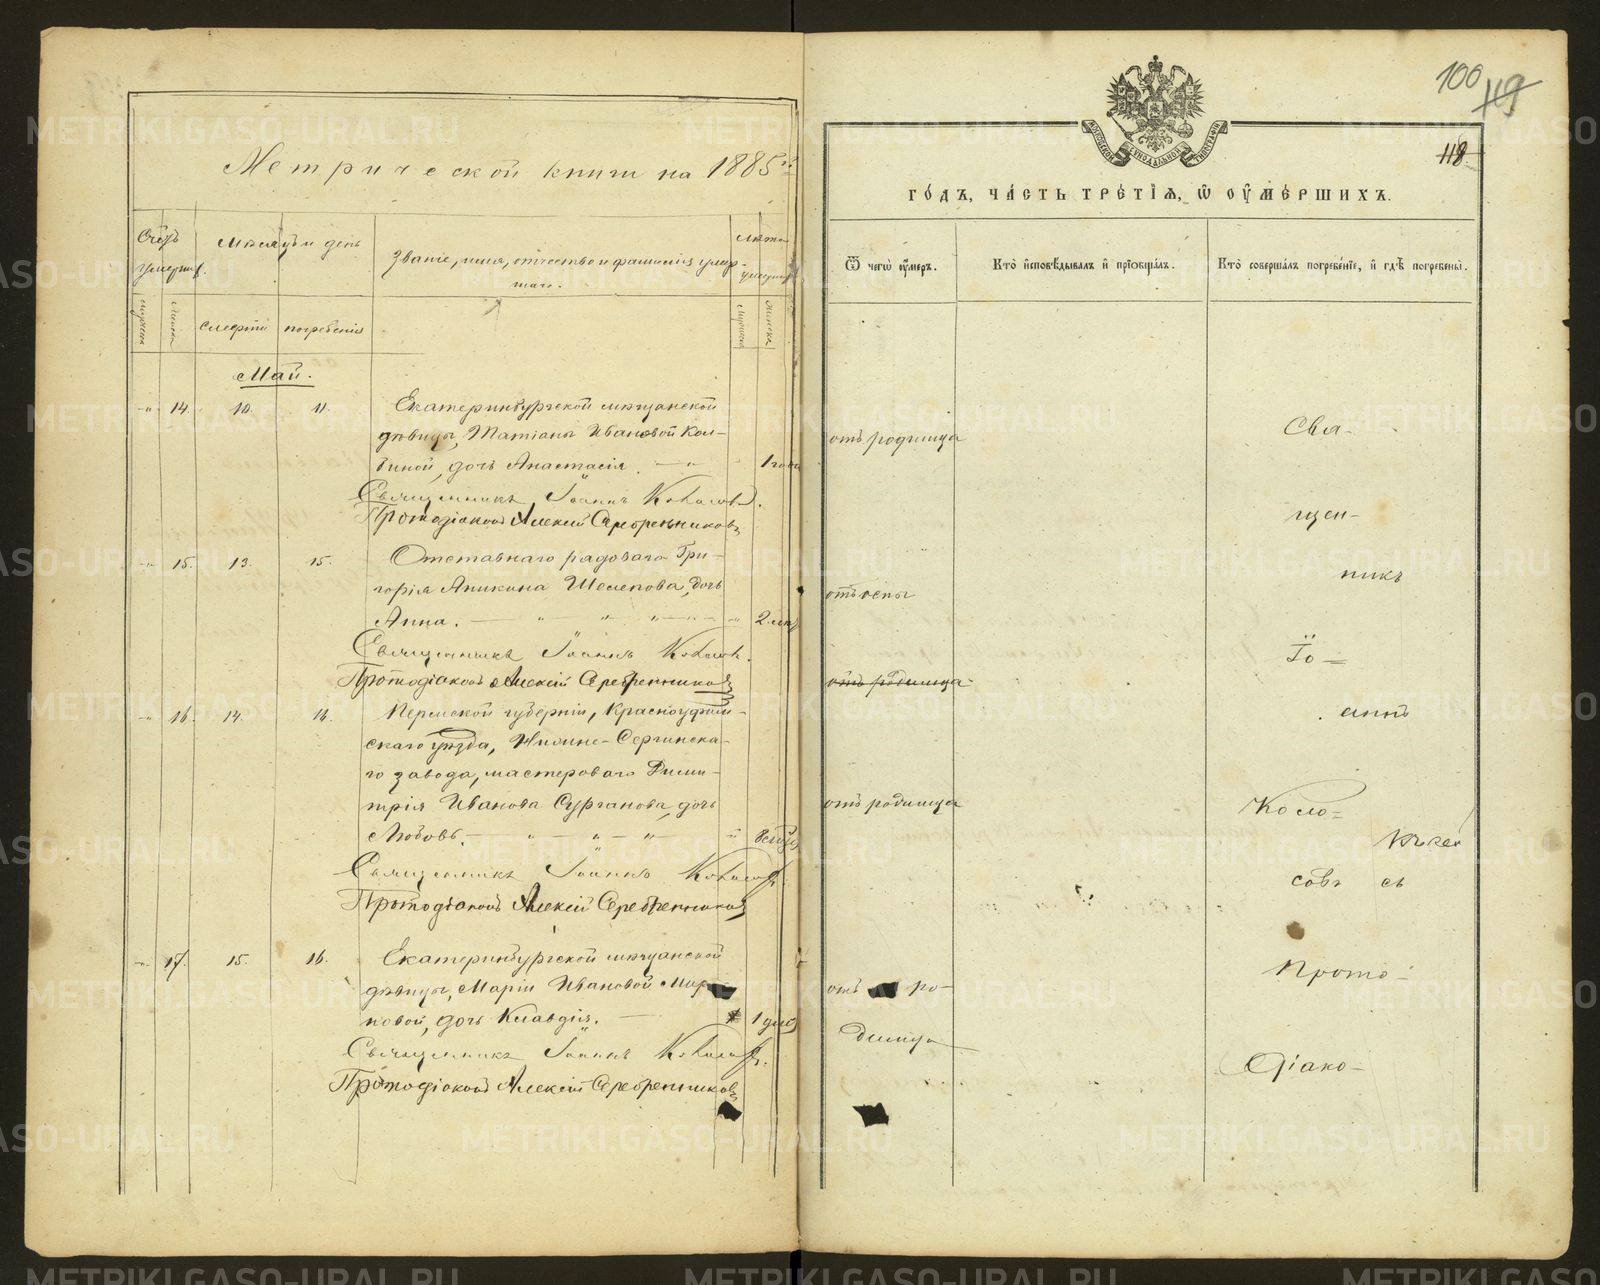 Метрической книги на 1885й
Счетъ умершихъ.
Мѣсяцъ и день
Званіе, имя, отчество и фамилія умер-
шаго.
Лѣта умершаго
Мужеска
Женска
смерти
погребенія
Мужеска
Женска
Май.
" 14. 10. 11. Екатеринбургской мѣщанской
дѣвицы, Татіаны Ивановой Кол-
биной, дочь Анастасія. — " 1 года
Священникъ Іоаннъ
Протодіаконъ Алексій Серебренниковъ
" 15. 13. 15. Отставнаго рядоваго Гри-
горія Аникина Шелепова, дочь
Анна. — " " " 2. лѣт
Священникъ Іоаннъ
Протодіаконъ Алексій Серебренниковъ
" 16. 14. 16. Пермской губерніи, Красноуфим-
скаго уѣзда, Нижне-Сергинска-
го завода, мастероваго Дими-
трія Иванова Сурганова, дочь
Любовь. — " — " — "
Священникъ Іоаннъ
Протодіаконъ Алексій Серебренниковъ
" 17. 15. 16. Екатеринбургской мѣщанской
дѣвицы, Маріи Ивановой Мар-
ковой, дочь Клавдія. — 1 дня
Священникъ Іоаннъ
Протодіаконъ Алексій Серебренниковъ
100
119
118
МОСКОВСКОЙ СѴНОДАЛЬНОЙ ТИПОГРАФІИ
ГО́ДЪ, ЧА́СТЬ ТРЕ́ТІѦ, Ѡ҆ ОУ҆МЕ́РШИХЪ.
Ѿ чегѡ̀ оу҆́меръ.
Кто̀ и҆сповѣ́дывалъ и҆ прїѡбща́лъ.
Кто̀ соверша́лъ погребе́нїе, и҆ гдѣ̀ погребены̀.
отъ родимца
Свя-
щен-
никъ
отъ оспы
Іо=
отъ родимца
аннъ
отъ родимца
Коло=
совъ съ
Прото-
отъ ро-
димца
діако-
METRIKI.GASO-URAL.RU